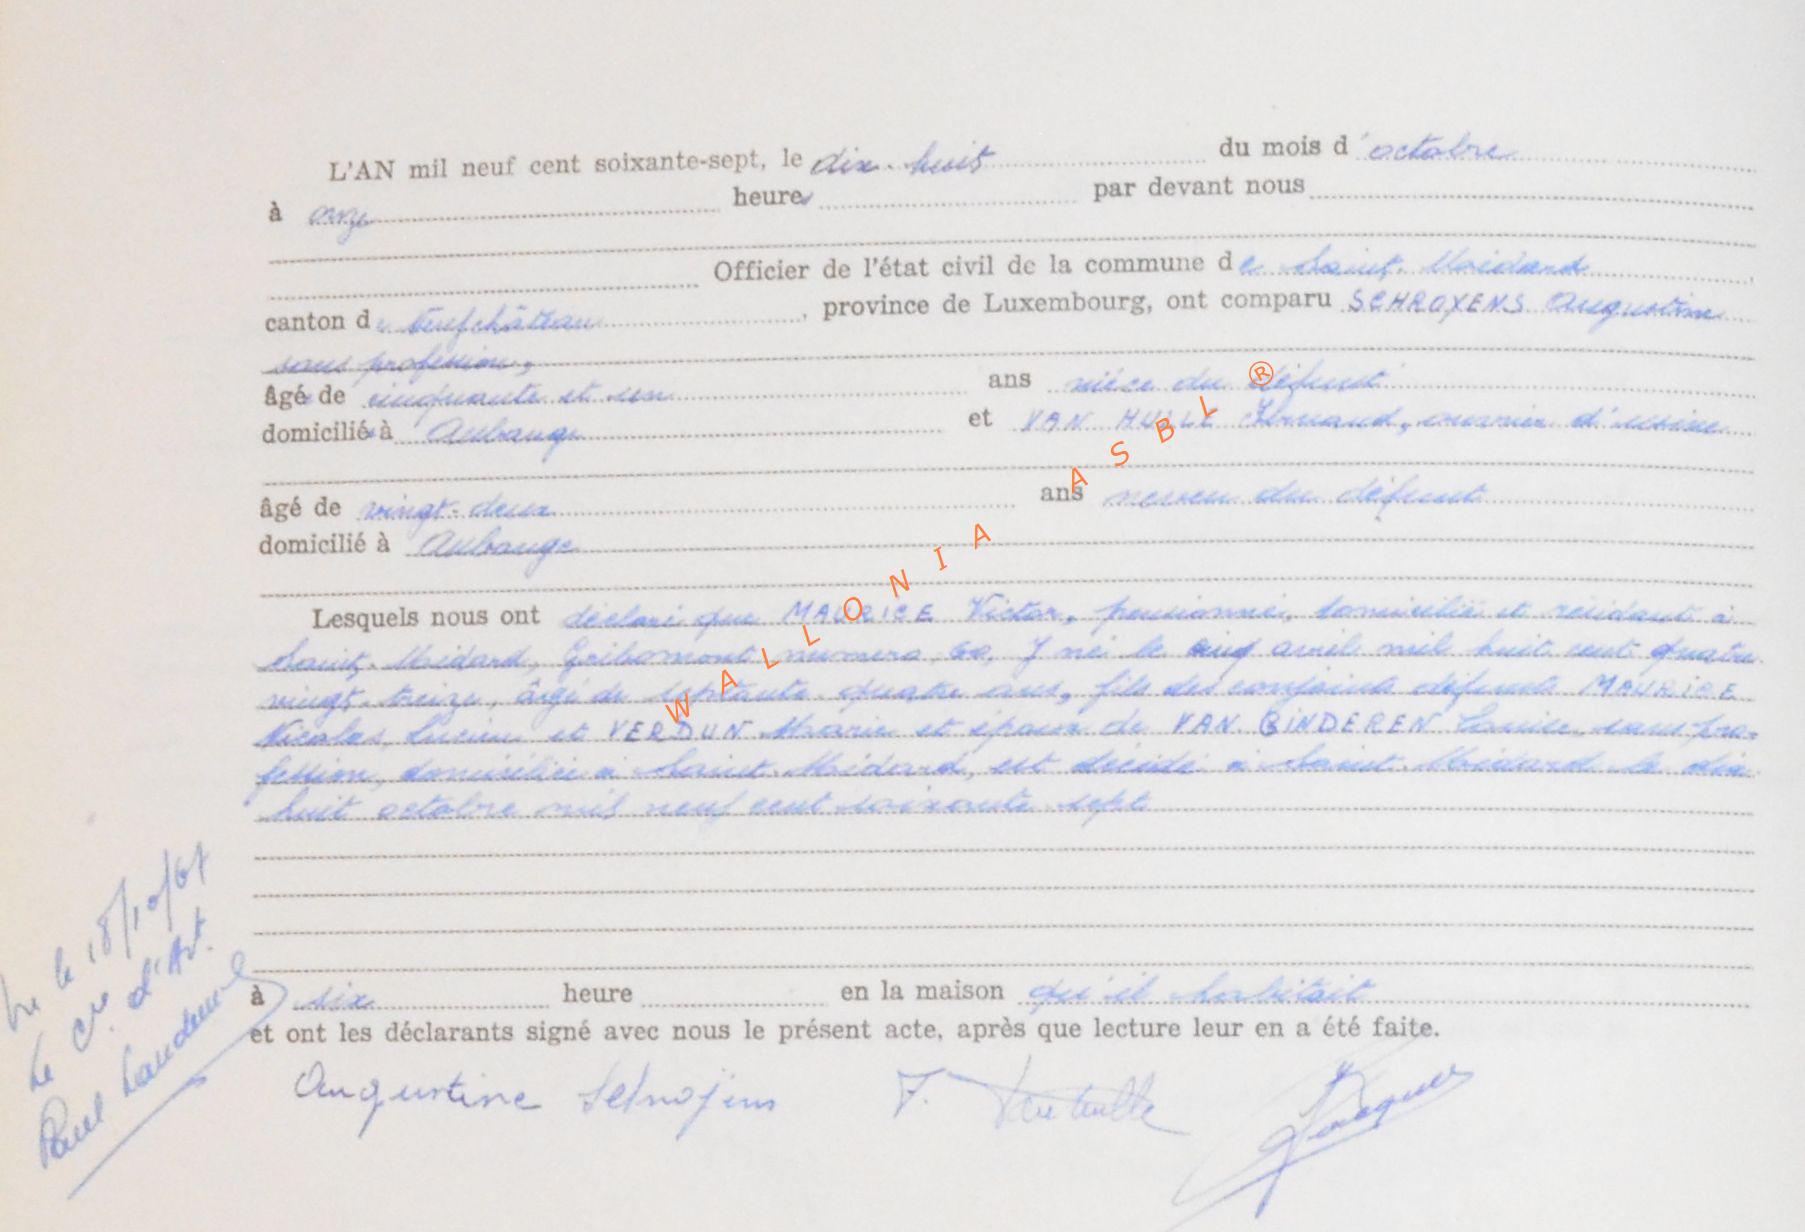 L'AN mil neuf cent soixante-sept, le dix-huit du mois d'octobre
à onze heures par devant nous
Officier de l'état civil de la commune de Saint-Médard
canton de Neufchâteau, province de Luxembourg, ont comparu SCHROYENS Augustine
sans profession,
âgée de cinquante et un ans nièce du défunt
domiciliée à Aubange et VAN HULLE Fernand, ouvrier d'usine
âgé de vingt-deux ans neveu du défunt
domicilié à Aubange
Lesquels nous ont déclaré que MAURICE Victor, pensionné, domicilié et résidant à
Saint-Médard, Gribomont numéro 60, né le cinq avril mil huit cent quatre
vingt-treize, âgé de septante quatre ans, fils des conjoints défunts MAURICE
Nicolas, Lucien et VERDUN Marie et époux de VAN BINDEREN Louise, sans pro-
fession, domiciliée à Saint-Médard, est décédé à Saint-Médard le dix
huit octobre mil neuf cent soixante sept
à six heure en la maison qu'il habitait
et ont les déclarants signé avec nous le présent acte, après que lecture leur en a été faite.
Augustine Schrojens F. Van Hulle
Vu le 18/10/67
Le d'Art.
Paul
WALLONIA ASBL ®